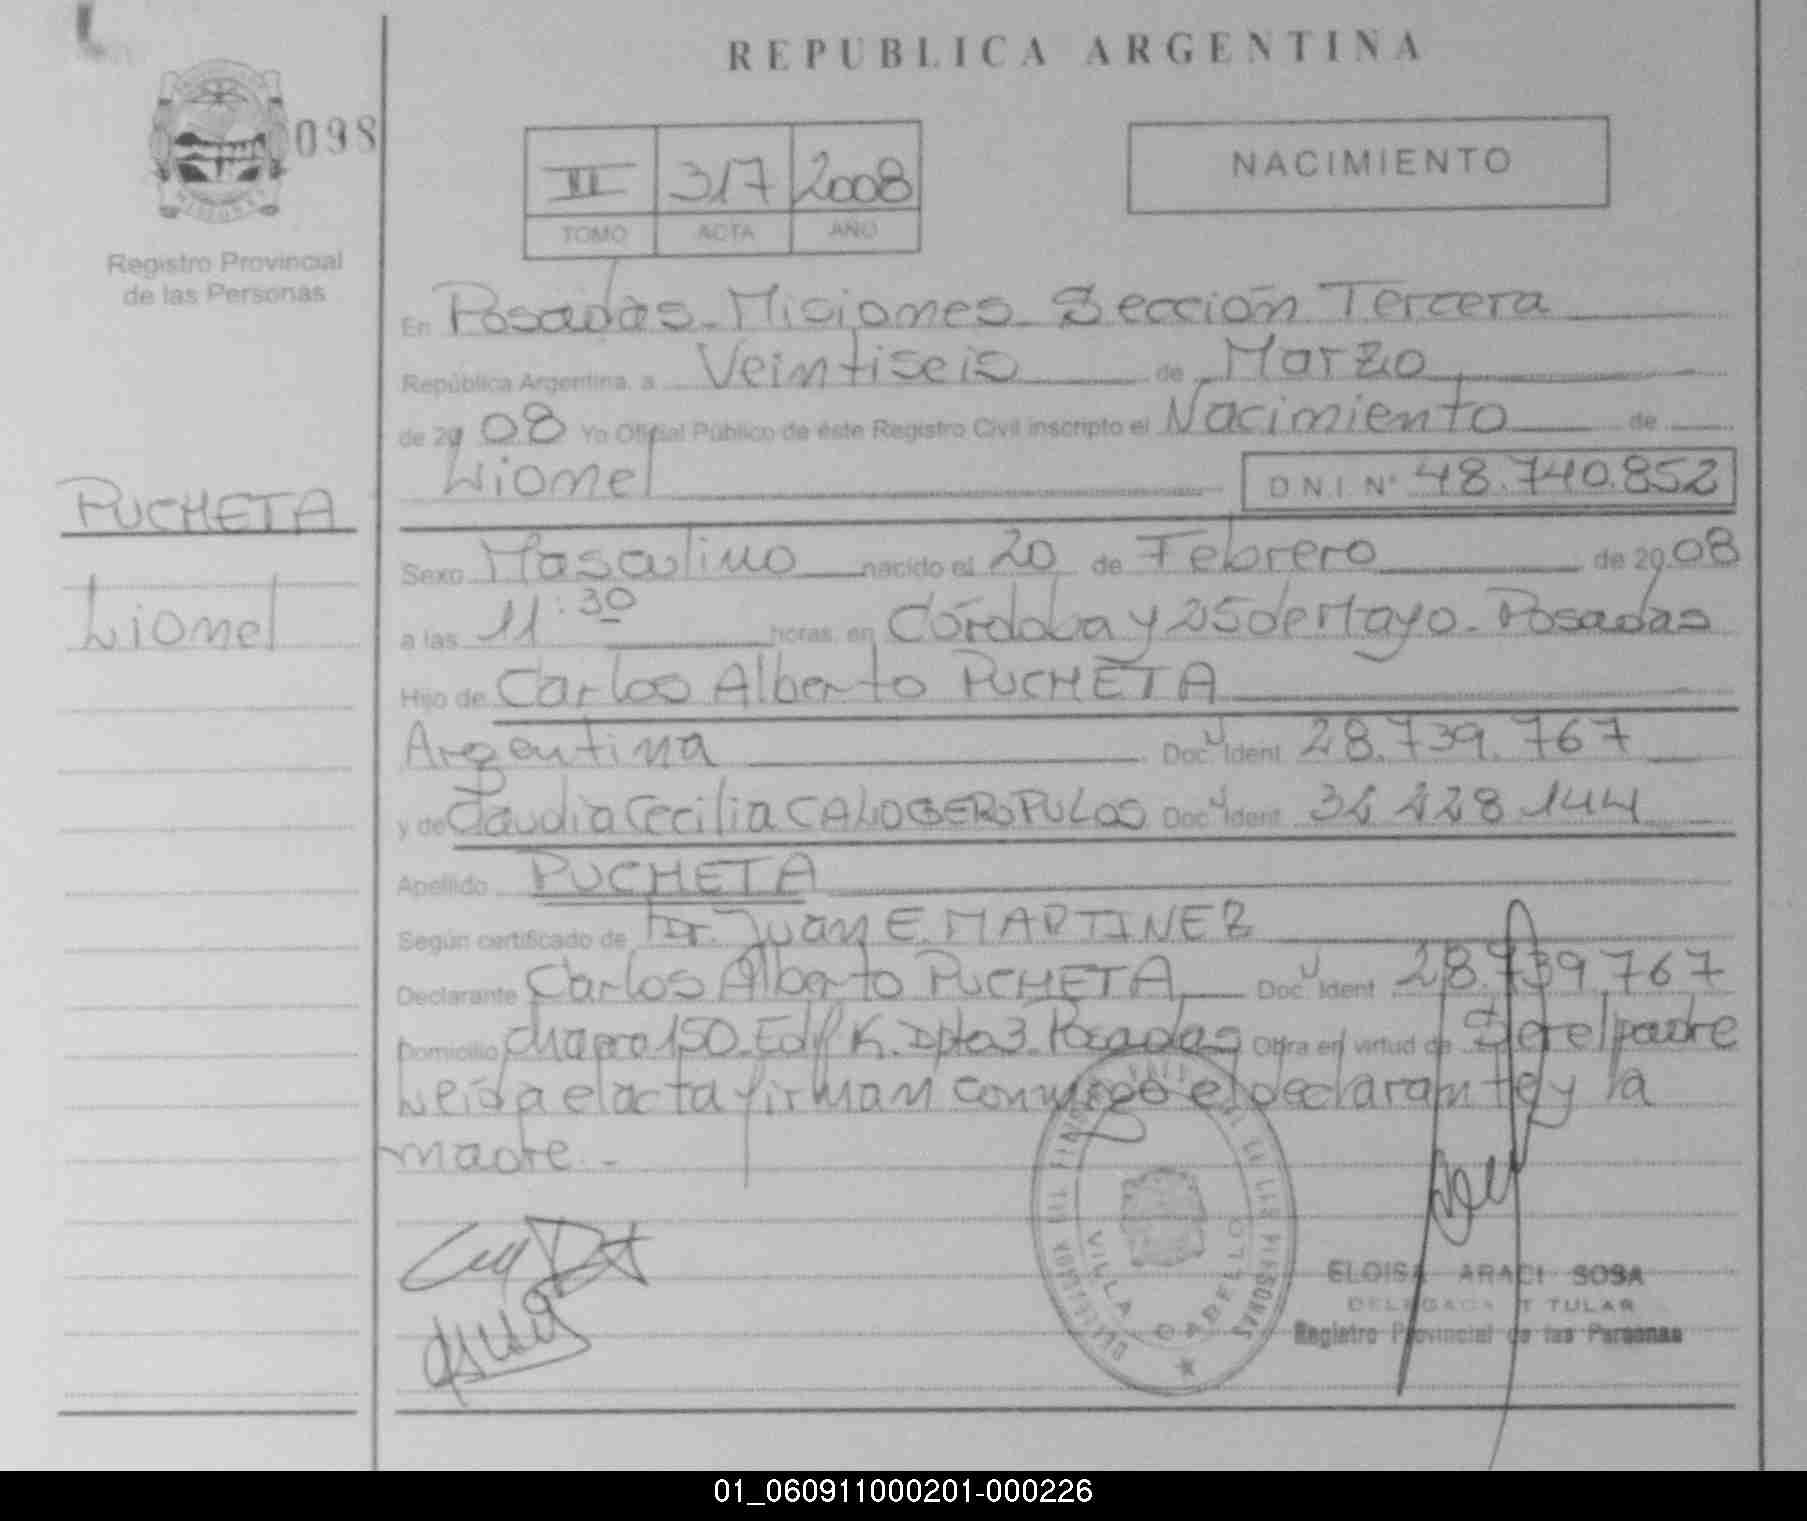 REPUBLICA ARGENTINA
098
III 317 2008
TOMO ACTA AÑO
NACIMIENTO
Registro Provincial
de las Personas
En Posadas - Misiones - Sección Tercera
República Argentina, a Veintiseis de Marzo
de 2008 Yo Oficial Público de éste Registro Civil inscripto el Nacimiento de
Lionel D.N.I. N° 48.740.852
PUCHETA
Lionel
Sexo Masculino nacido el 20 de Febrero de 2008
a las 11:30 horas, en Córdoba y 25 de Mayo - Posadas
Hijo de Carlos Alberto PUCHETA
Argentina Doc. Ident 28.739.767
y de Claudia Cecilia CALOGEROPULOS Doc. Ident
Apellido PUCHETA
Según certificado de Dr. Juan E. MARTINEZ
Declarante Carlos Alberto PUCHETA Doc. Ident 28.739.767
Domicilio Chacra 150 - Edif K. Dpto 3 - Posadas Obra en virtud de Ser el padre
Leída el acta firman conmigo el declarante y la
madre -
VILLA CABELLO
ELOISA ARACI SOSA
DELEGADA TITULAR
Registro Provincial de las Personas
01_060911000201-000226